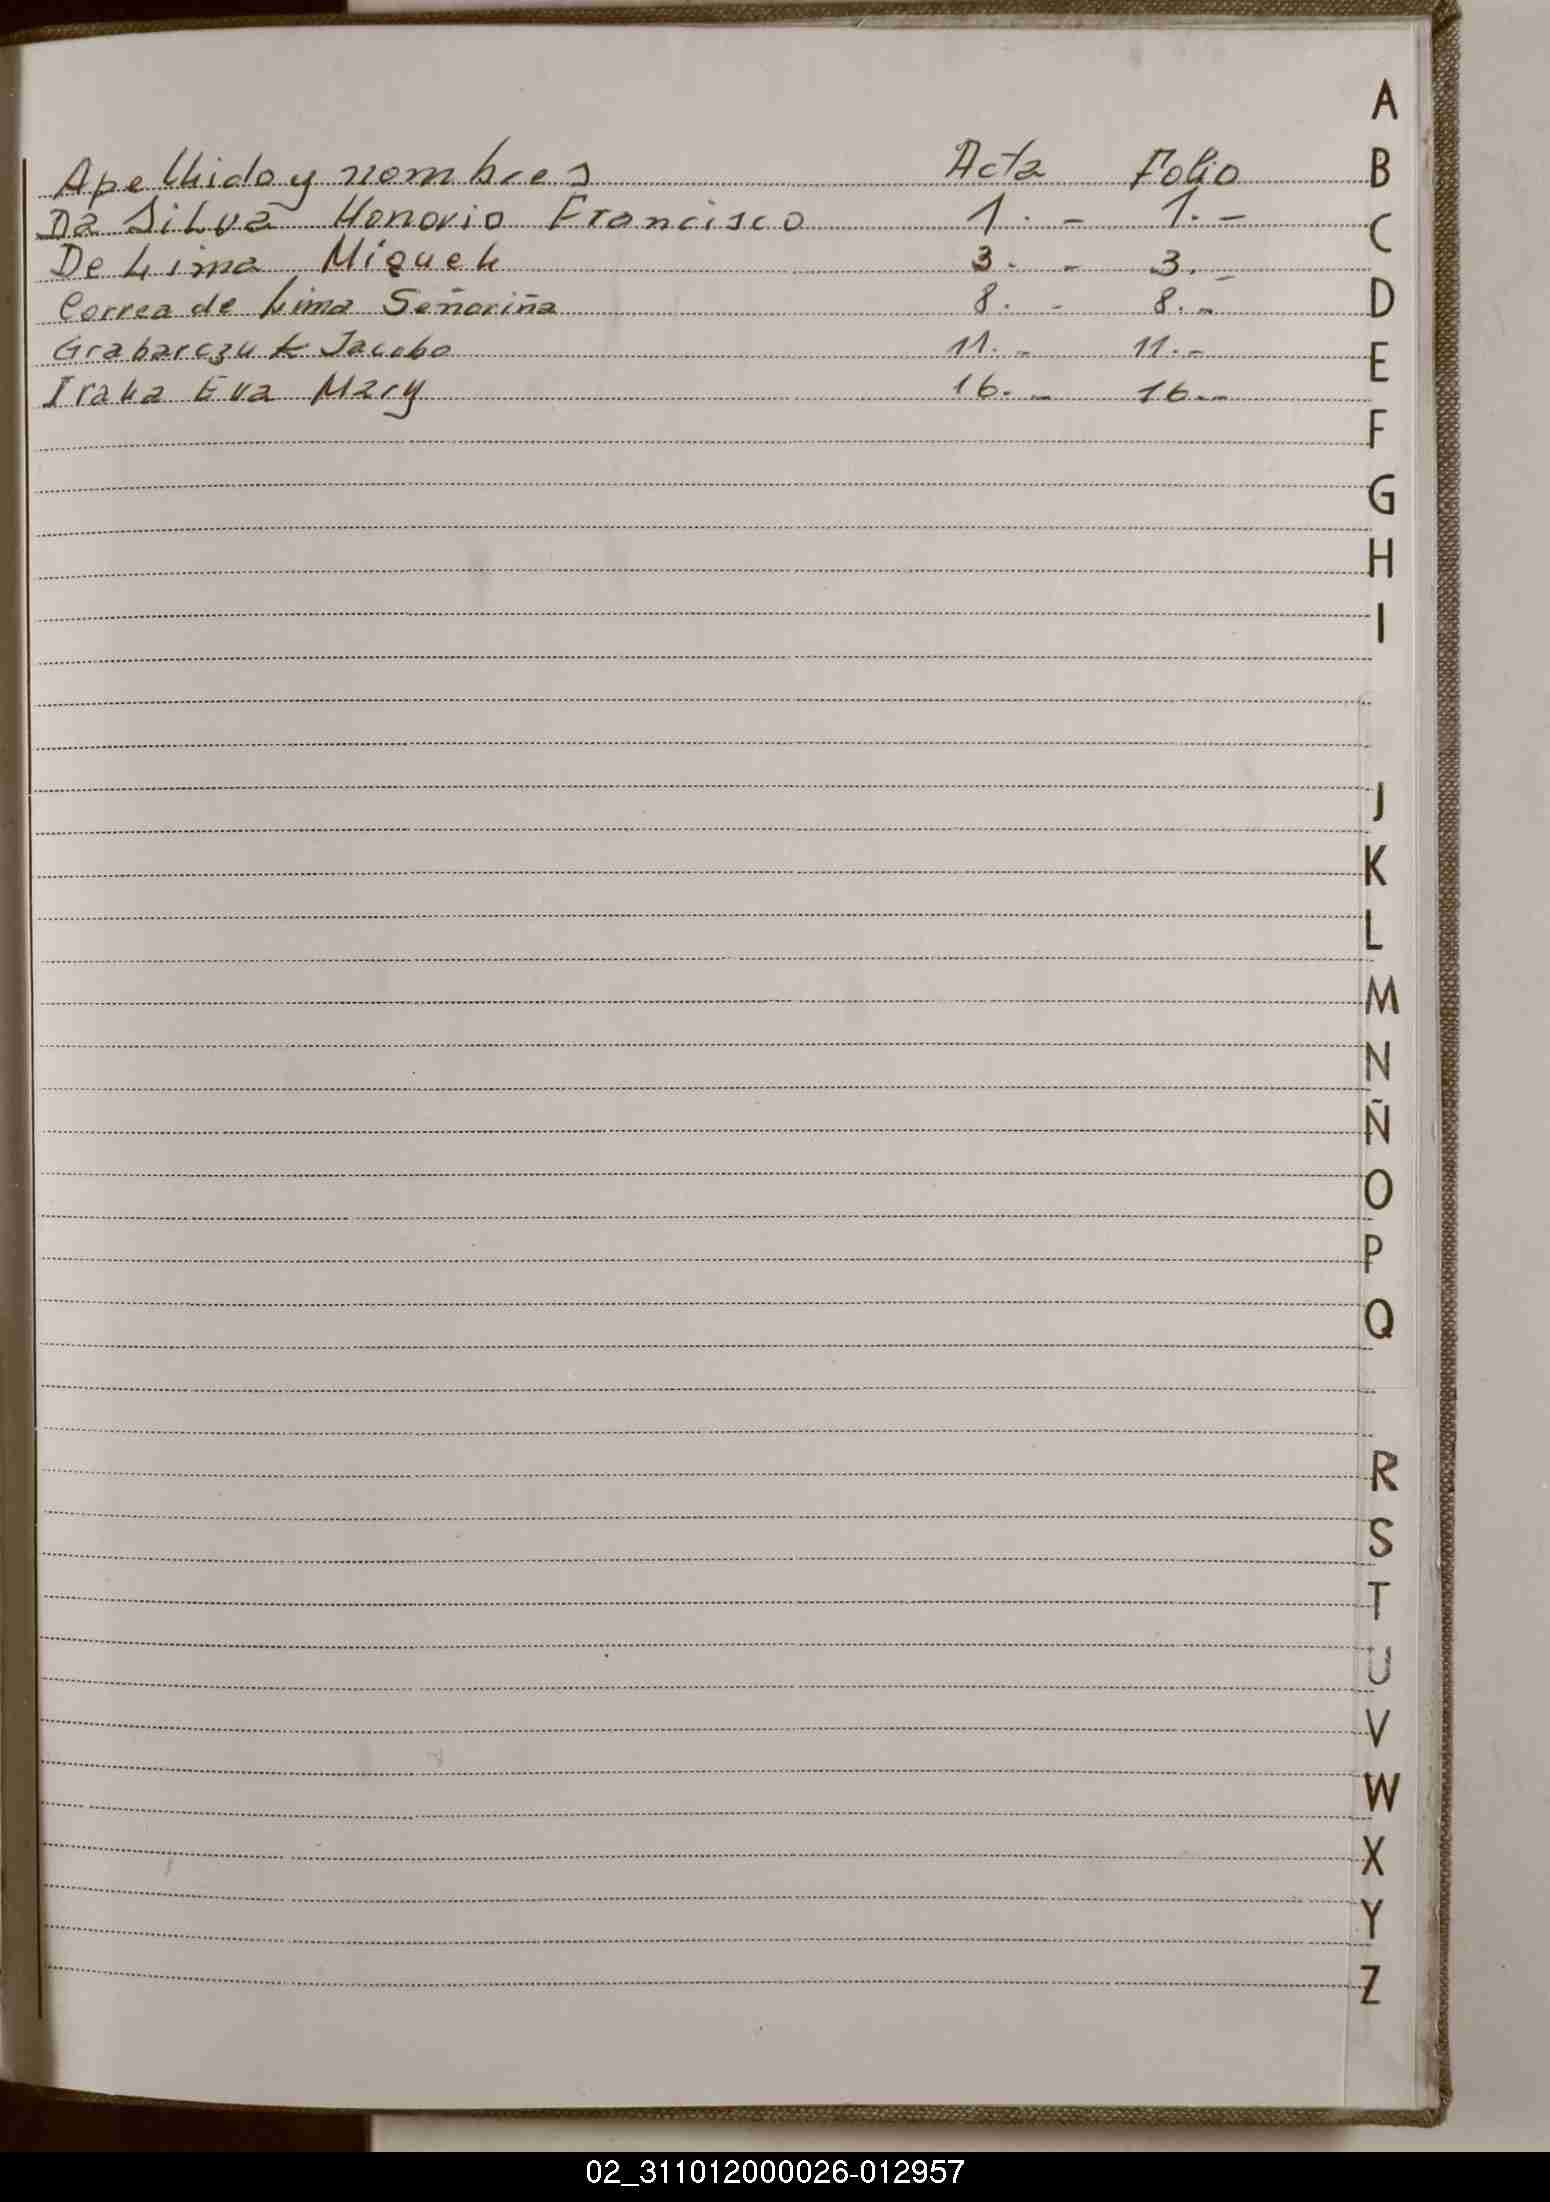 Apellido y nombres Acta Folio
Da Silva Honorio Francisco 1.- 1.-
De Lima, Miguel 3.- 3.-
Correa de Lima Señoriña 8.- 8.-
Grabarczuk Jacobo 11.- 11.-
Irala Eva Mary 16.- 16.-
A
B
C
D
E
F
G
H
I
J
K
L
M
N
Ñ
O
P
Q
R
S
T
U
V
W
X
Y
Z
02_311012000026-012957